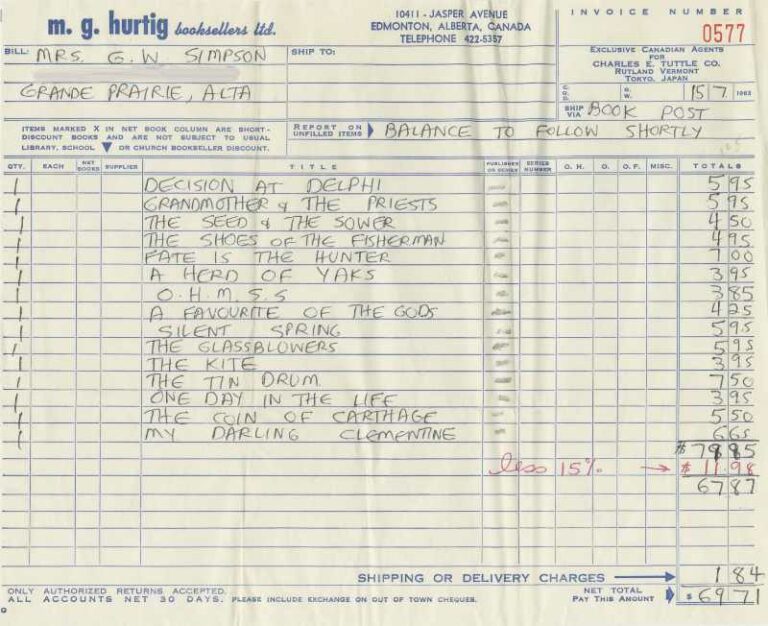 m. g. hurtig booksellers ltd.
10411 - JASPER AVENUE
EDMONTON, ALBERTA, CANADA
TELEPHONE 422-5357
INVOICE NUMBER
0577
BILL: MRS. G. W. SIMPSON
GRANDE PRAIRIE, ALTA
SHIP TO:
EXCLUSIVE CANADIAN AGENTS
FOR
CHARLES E. TUTTLE CO.
RUTLAND VERMONT
TOKYO, JAPAN
15 7 1963
SHIP VIA BOOK POST
ITEMS MARKED X IN NET BOOK COLUMN ARE SHORT-
DISCOUNT BOOKS AND ARE NOT SUBJECT TO USUAL
LIBRARY, SCHOOL OR CHURCH BOOKSELLER DISCOUNT.
REPORT ON UNFILLED ITEMS BALANCE TO FOLLOW SHORTLY
QTY. EACH NET BOOKS SUPPLIER TITLE PUBLISHER OR SERIES SERIES NUMBER O. H. O. O. F. MISC. TOTALS
1 DECISION AT DELPHI 5 95
1 GRANDMOTHER & THE PRIESTS 5 95
1 THE SEED & THE SOWER 4 50
1 THE SHOES OF THE FISHERMAN 4 95
1 FATE IS THE HUNTER 7 00
1 A HERD OF YAKS 3 95
1 O.H.M.S.S 3 85
1 A FAVOURITE OF THE GODS 4 25
1 SILENT SPRING 5 95
1 THE GLASSBLOWERS 5 95
1 THE KITE 3 95
1 THE TIN DRUM 7 50
1 ONE DAY IN THE LIFE 3 95
1 THE COIN OF CARTHAGE 5 50
1 MY DARLING CLEMENTINE 6 65
$ 79 85
less 15% → $ 11.98
67 87
SHIPPING OR DELIVERY CHARGES 1 84
ONLY AUTHORIZED RETURNS ACCEPTED.
ALL ACCOUNTS NET 30 DAYS. PLEASE INCLUDE EXCHANGE ON OUT OF TOWN CHEQUES.
NET TOTAL
PAY THIS AMOUNT $ 69 71